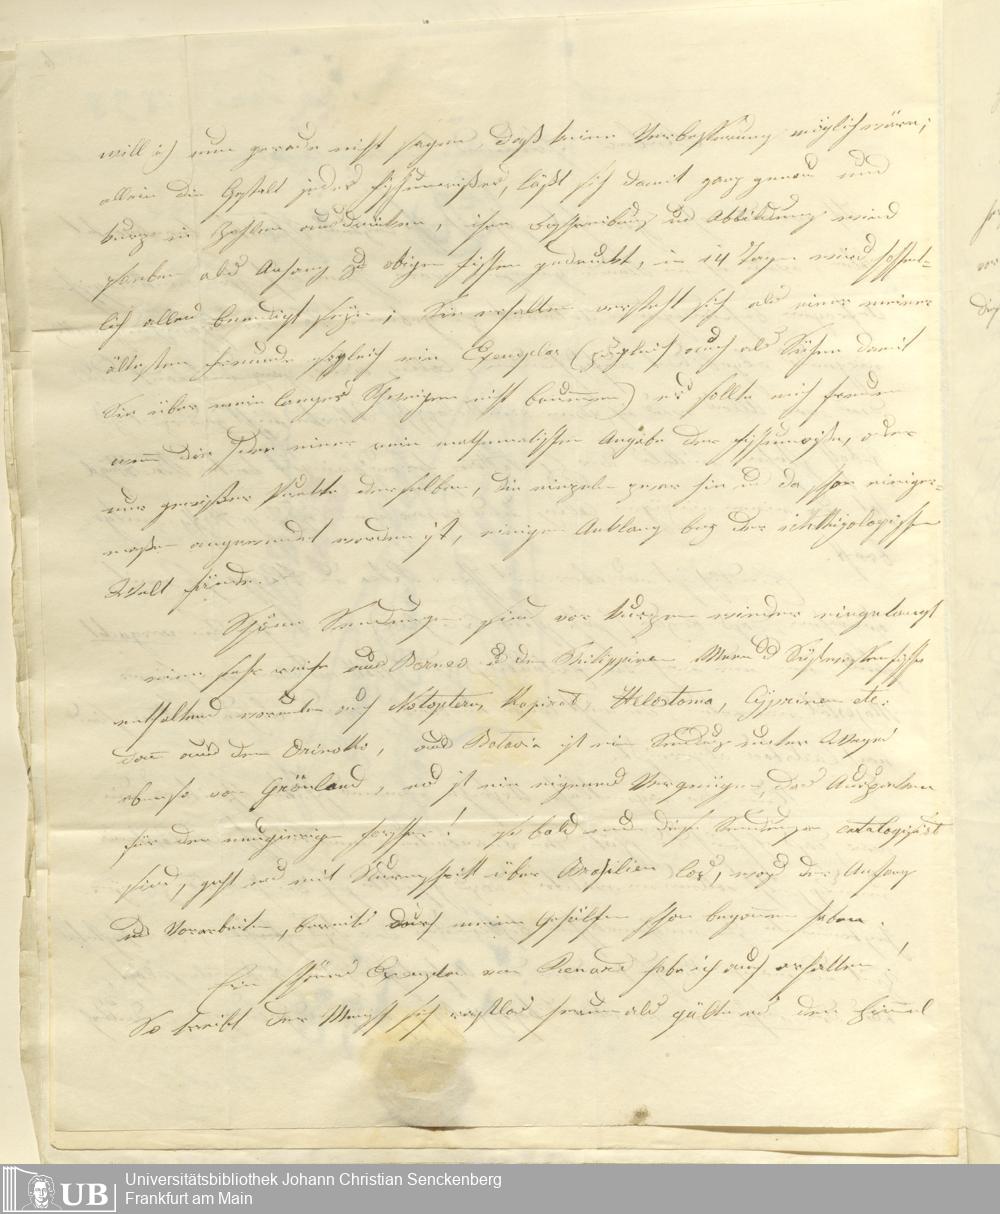 will ich nun gerade nicht sagen, daß keine Verbesserung möglich wäre;
allein die Gestalt jedes Fischumrißes, läßt sich damit ganz genau und
kurz in Zahlen ausdrücken, ihre Beschreibung und Abbildung wird
soeben als Anfang zu obigen Fischen gedruckt, in 14 Tagen wird hoffent=
lich alles beendigt seyn; Sie erhalten versteht sich als einer meiner
ältesten Freunde sogleich ein Exemplar (zugleich auch als Sühne damit
Sie über mein langes Schweigen nicht brummen) es sollte mich freuen
wenn die Idee einer rein mathematischen Angabe der Fischumriße, oder
nur gewißer Punkte derselben, die einzeln zwar hie und da schon einiger=
maßen angewendet worden ist, einigen Anklang bey der ichthyologischen
Welt fände.
Schöne Sendungen sind vor kurzem wieder eingelangt
eine sehr reiche aus Borneo u den Philippinen Meer u Süßwasserfische
enthaltend worunter auch Notopterus Kapirat, Helostoma, Cyprinen etc.
dann aus dem Orinokko, aus Batavia ist eine Sendung unter Wegs
ebenso von Grönland, es ist ein eigenes Vergnügen, das Auspacken
für den neugierigen Forscher! so bald nun diese Sendungen catalogisirt
sind, geht es mit Sturmschritt über Brasilien los, wozu der Anfang
und Vorarbeiten, bereits durch meine Gehülfen schon begonnen haben.
Ein schönes Exemplar von Renard habe ich auch erhalten!
So treibt der Mensch sich rastlos herum als gälte es den Himmel
Universitätsbibliothek Johann Christian Senckenberg
Frankfurt am Main
UB